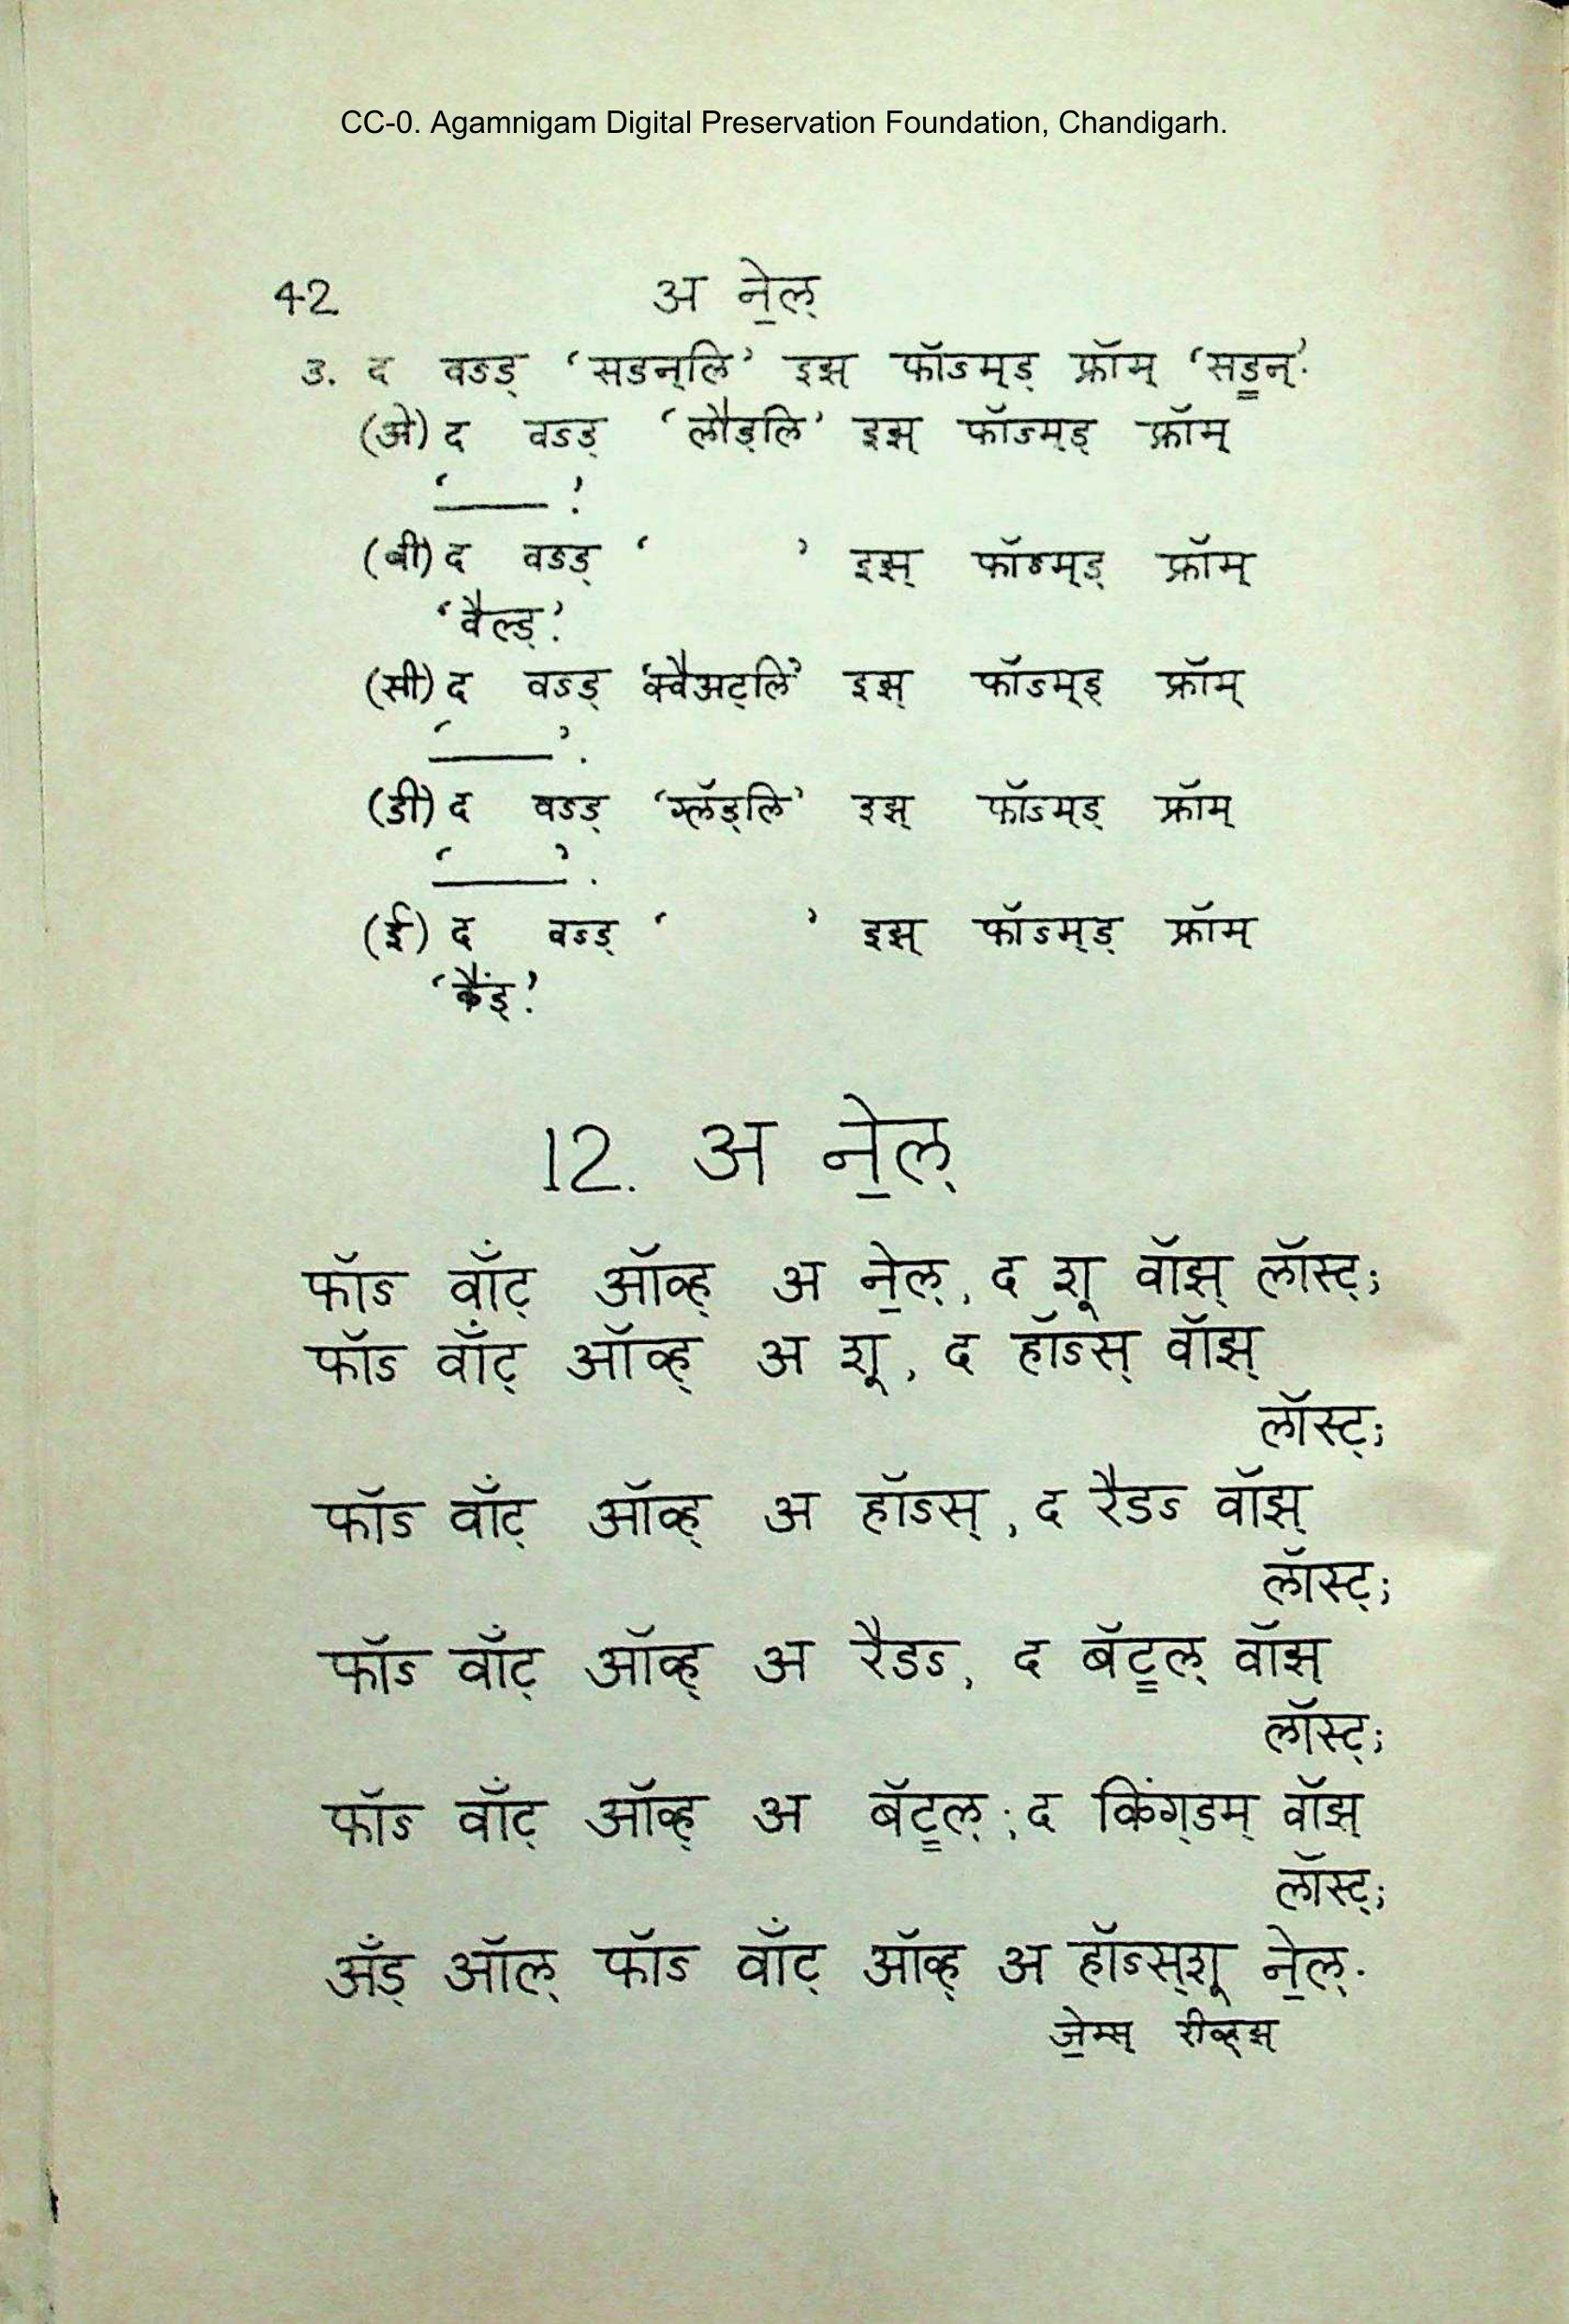 CC-0. Agamnigam Digital Preservation Foundation, Chandigarh.
42 अ ने॒ल्
3. द वऽड् ‘सडन्‌लि’ इझ् फॉऽम्ड् फ्रॉम् ‘सड॒न्’.
(ॲ) द वऽड् ‘लौड्‌लि’ इझ् फॉऽम्ड् फ्रॉम्
‘____’.
(बी) द वऽड् ‘ ’ इझ् फॉऽम्ड् फ्रॉम्
‘वैल्ड्’.
(सी) द वऽड् ‘क्वैअट्‌लि’ इझ् फॉऽम्ड् फ्रॉम्
‘____’.
(डी) द वऽड् ‘ग्लॅड्‌लि’ इझ् फॉऽम्ड् फ्रॉम्
‘____’.
(ई) द वऽड् ‘ ’ इझ् फॉऽम्ड् फ्रॉम्
‘कैंड्’.
12. अ ने॒ल्
फॉऽ वॉँट् ऑव्ह् अ ने॒ल्, द शू वॉझ् लॉस्ट्;
फॉऽ वॉँट् ऑव्ह् अ शू, द हॉऽस् वॉझ्
लॉस्ट्;
फॉऽ वॉँट् ऑव्ह् अ हॉऽस्, द रैडऽ वॉझ्
लॉस्ट्;
फॉऽ वॉँट् ऑव्ह् अ रैडऽ, द बॅट॒ल् वॉझ्
लॉस्ट्;
फॉऽ वॉँट् ऑव्ह् अ बॅट॒ल्; द किंग्‌डम् वॉझ्
लॉस्ट्;
अँड् ऑल् फॉऽ वॉँट् ऑव्ह् अ हॉऽस्‌शू ने॒ल्.
जे॒म्स् रीव्ह्‌झ्